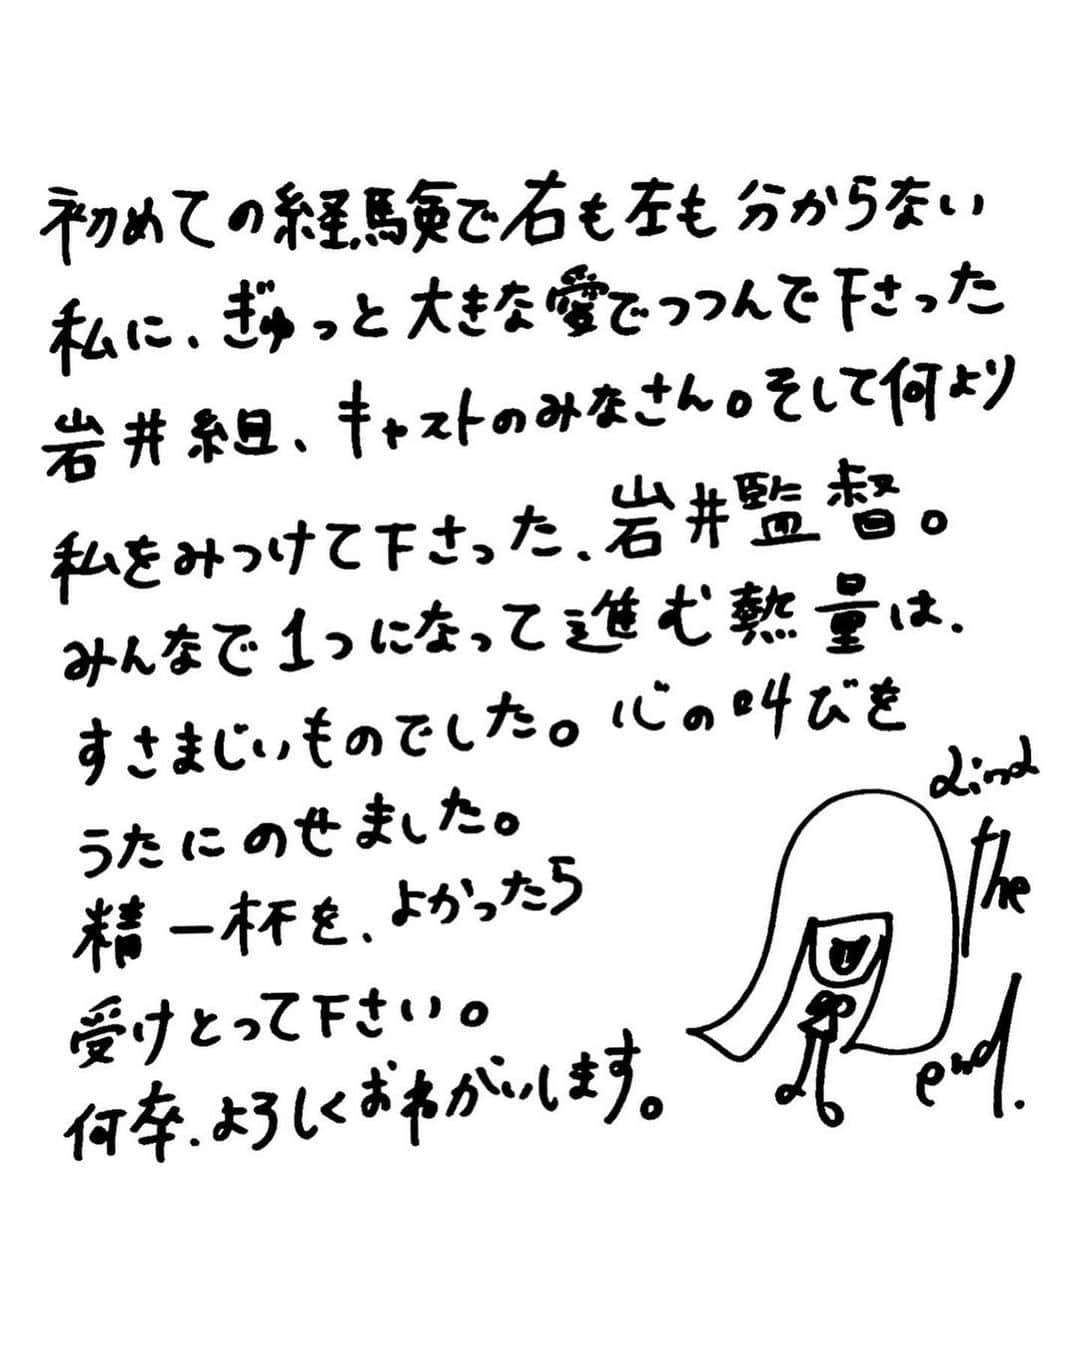 初めての経験で右も左も分からない
私に、ぎゅっと大きな愛でつつんで下さった
岩井組、キャストのみなさん。そして何より
私をみつけて下さった、岩井監督。
みんなで1つになって進む熱量は、
すさまじいものでした。心の叫びを
うたにのせました。
精一杯を、よかったら
受けとって下さい。
何卒、よろしくおねがいします。
aind
the
end.